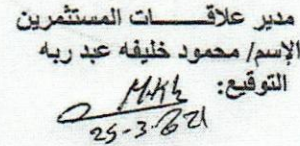 مدير علاقـــات المستثمرين
الإسم/ محمود خليفه عبد ربه
التوقيع:
25-3-2021